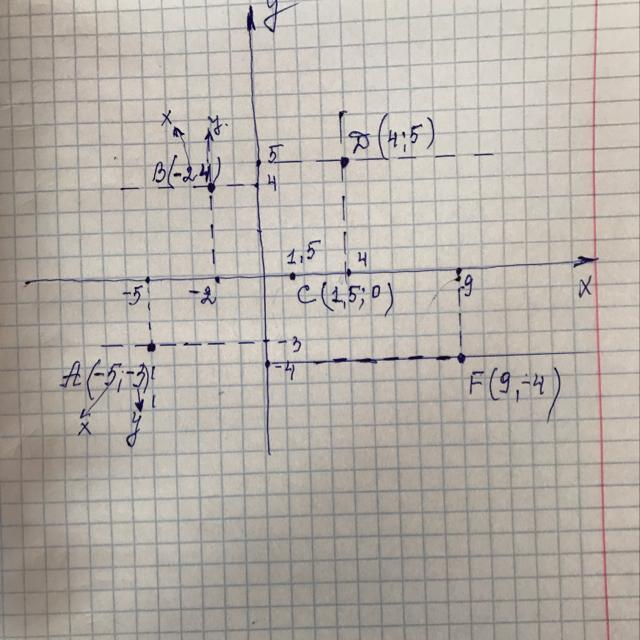 y
x y
D(4;5)
5
B(-2,4)
4
1,5
4
-5
-2
C(1,5;0)
9
x
-3
A(-5;-3)
-4
F(9,-4)
x
y